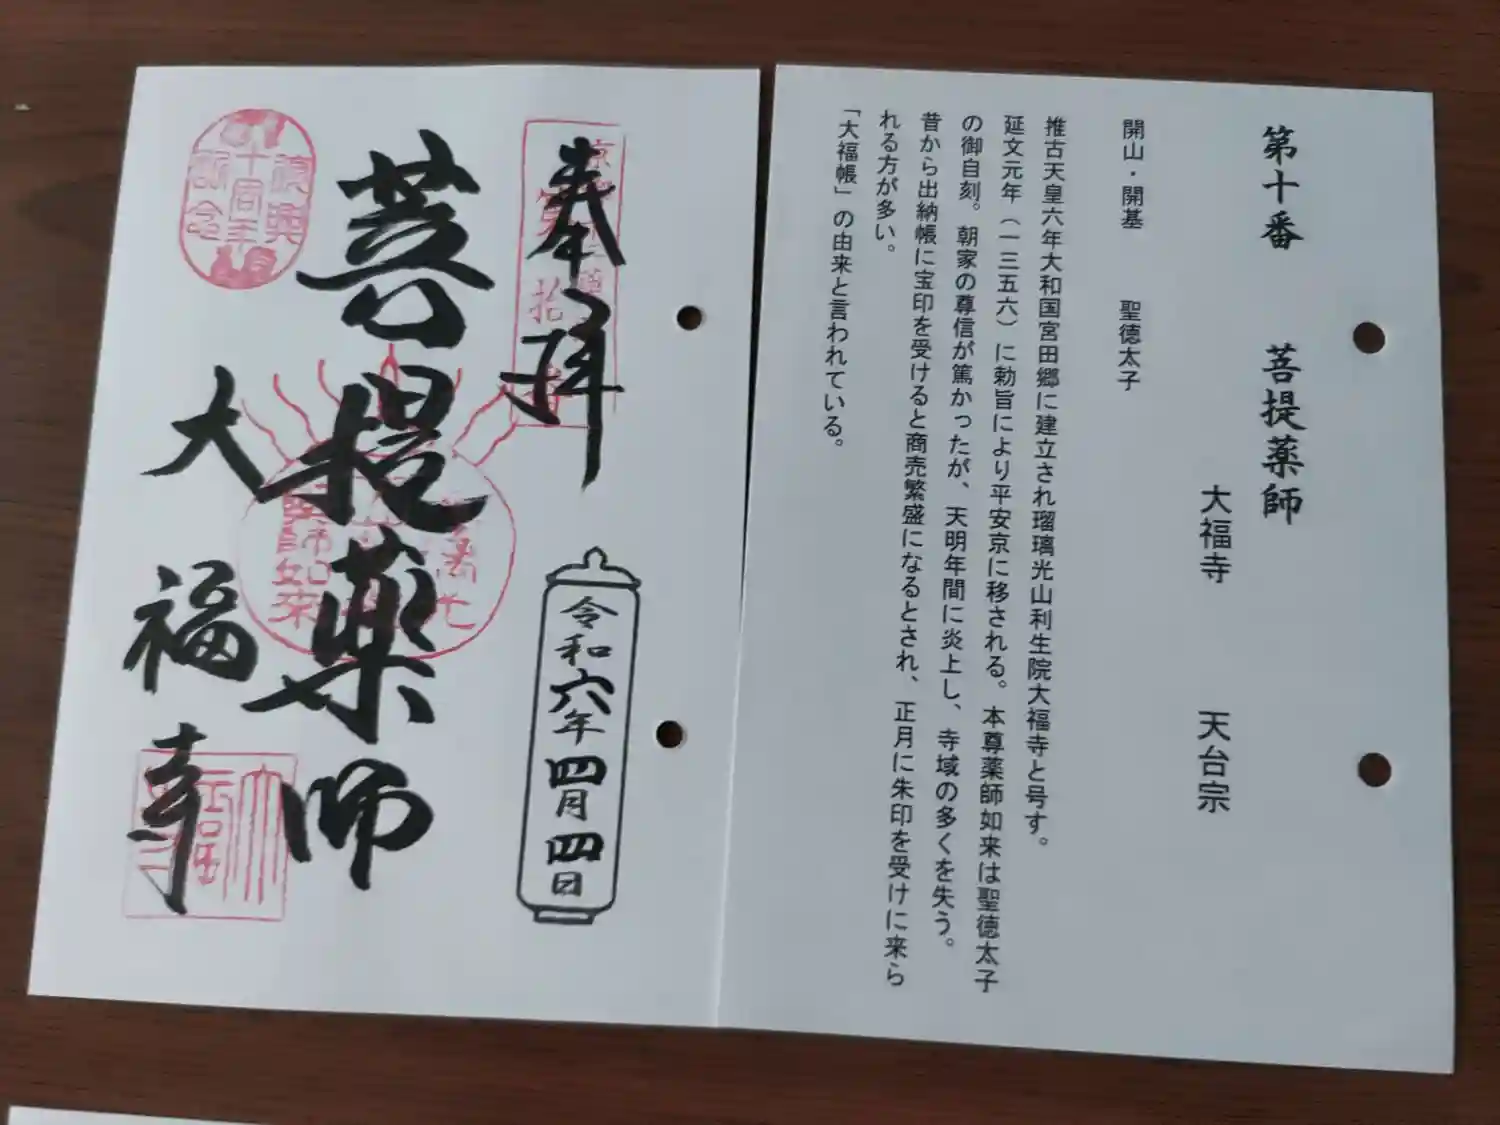 第十番　菩提薬師
大福寺　天台宗
開山・開基　聖徳太子
推古天皇六年大和国宮田郷に建立され瑠璃光山利生院大福寺と号す。
延文元年（一三五六）に勅旨により平安京に移される。本尊薬師如来は聖徳太子
の御自刻。朝家の尊信が篤かったが、天明年間に炎上し、寺域の多くを失う。
昔から出納帳に宝印を受けると商売繁盛になるとされ、正月に朱印を受けに来ら
れる方が多い。
「大福帳」の由来と言われている。
奉拝
令和六年四月四日
菩提薬師
大福寺
復興
十周年
記念